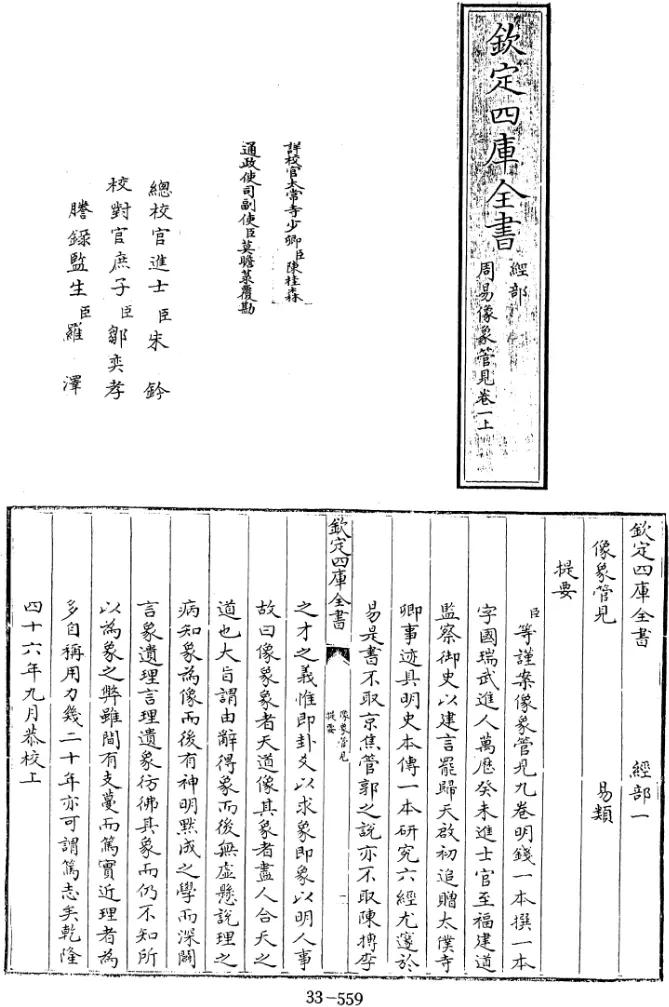 欽定四庫全書
經部
周易像象管見卷一上
詳校官太常寺少卿臣陳桂森
通政使司副使臣莫瞻菉覆勘
總校官進士臣朱鈐
校對官庶子臣鄒奕孝
謄錄監生臣羅澤
欽定四庫全書 經部一
像象管見 易類
提要
臣等謹案像象管見九卷明錢一本撰一本
字國瑞武進人萬厯癸未進士官至福建道
監察御史以建言罷歸天啟初追贈太僕寺
卿事迹具明史本傳一本研究六經尤邃於
易是書不取京焦管郭之說亦不取陳摶李
欽定四庫全書
像象管見
提要
一
之才之義惟即卦爻以求象即象以明人事
故曰像象象者天道像其象者盡人合天之
道也大旨謂由辭得象而後無虛懸說理之
病知象為像而後有神明黙成之學而深闢
言象遺理言理遺象彷彿其象而仍不知所
以為象之弊雖間有支蔓而篤實近理者為
多自稱用力幾二十年亦可謂篤志矣乾隆
四十六年九月恭校上
33-559